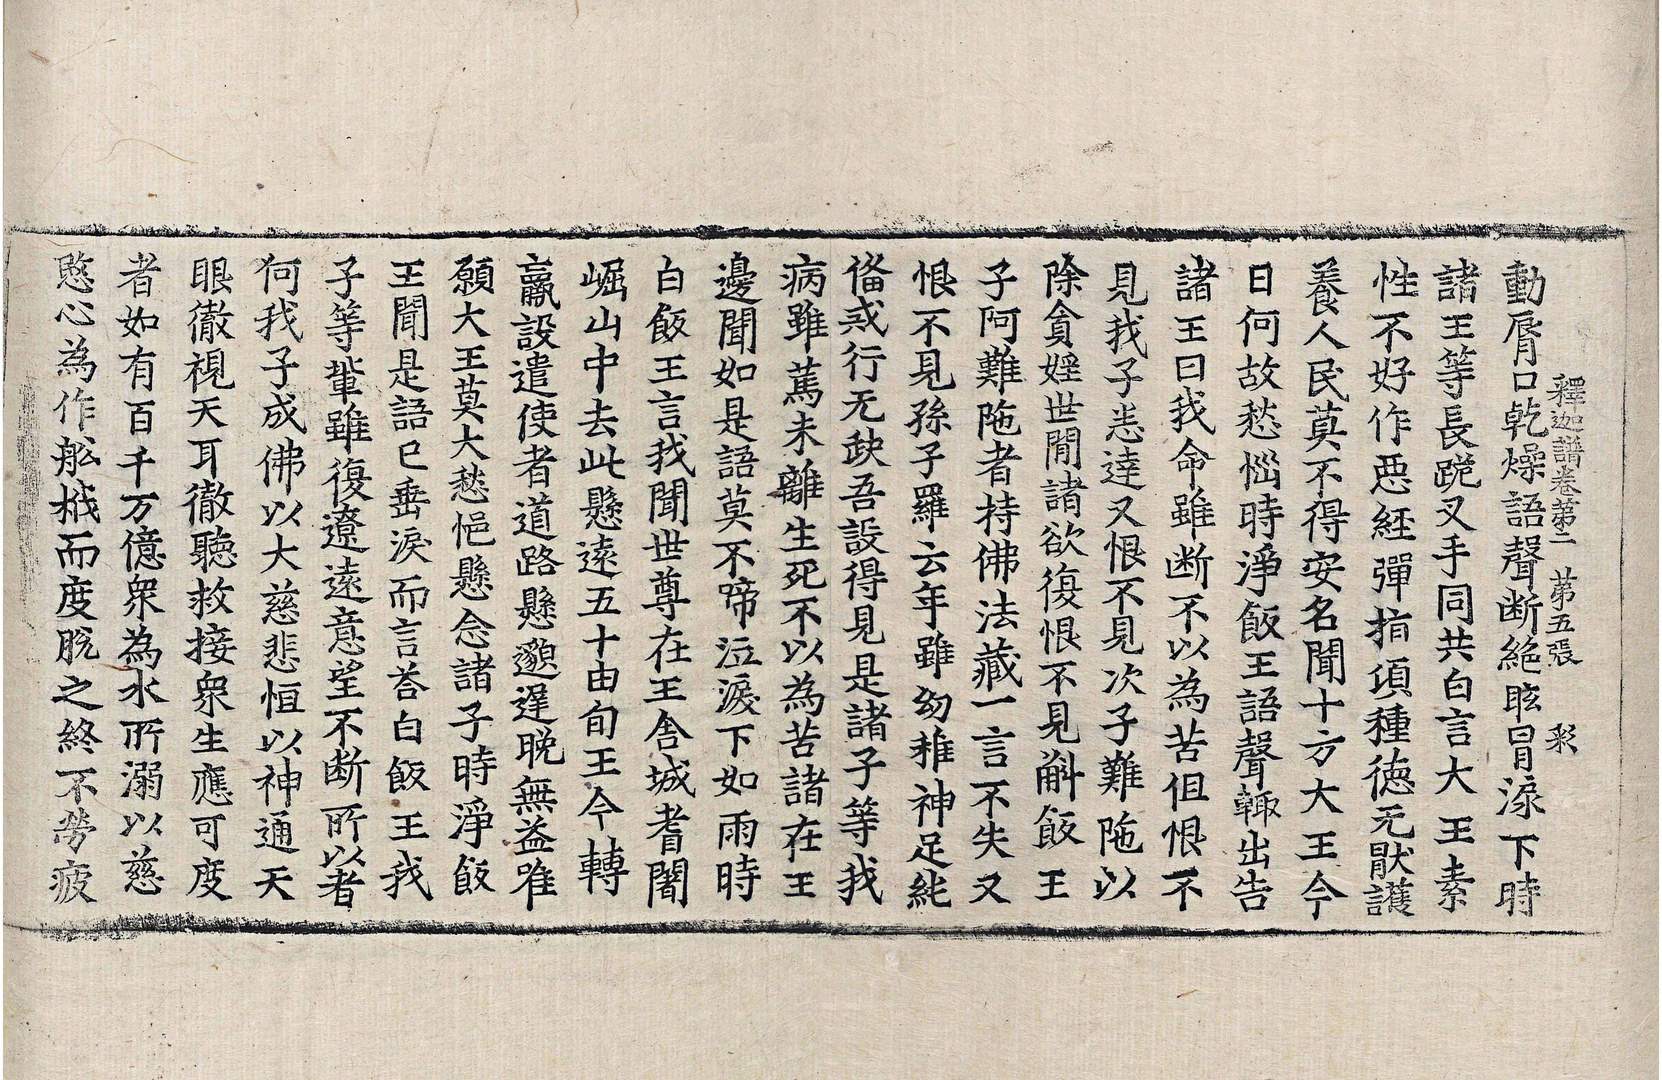 釋迦譜卷第二　第五張　彩
動脣口乹燥語聲断絶眩冒淚下時
諸王等長跪叉手同共白言大王素
性不好作恶経彈指頃種徳无猒護
養人民莫不得安名聞十方大王今
日何故愁惱時淨飯王語聲輙出告
諸王曰我命雖断不以為苦但恨不
見我子悉達又恨不見次子難陁以
除貪婬世閒諸欲復恨不見斛飯王
子阿難陁者持佛法藏一言不失又
恨不見孫子羅云年雖㓜稚神足純
俻戒行无缺吾設得見是諸子等我
病雖篤未離生死不以為苦諸在王
邊聞如是語莫不啼泣淚下如雨時
白飯王言我聞世尊在王舎城耆闍
崛山中去此懸遠五十由旬王今轉
羸設遣使者道路懸邈遅晚無益唯
願大王莫大愁悒懸念諸子時淨飯
王聞是語已垂淚而言荅白飯王我
子等軰雖復遼遠意望不断所以者
何我子成佛以大慈悲恒以神通天
眼徹視天耳徹聽救接衆生應可度
者如有百千万億衆為水所溺以慈
愍心為作舩栰而度脱之終不勞疲